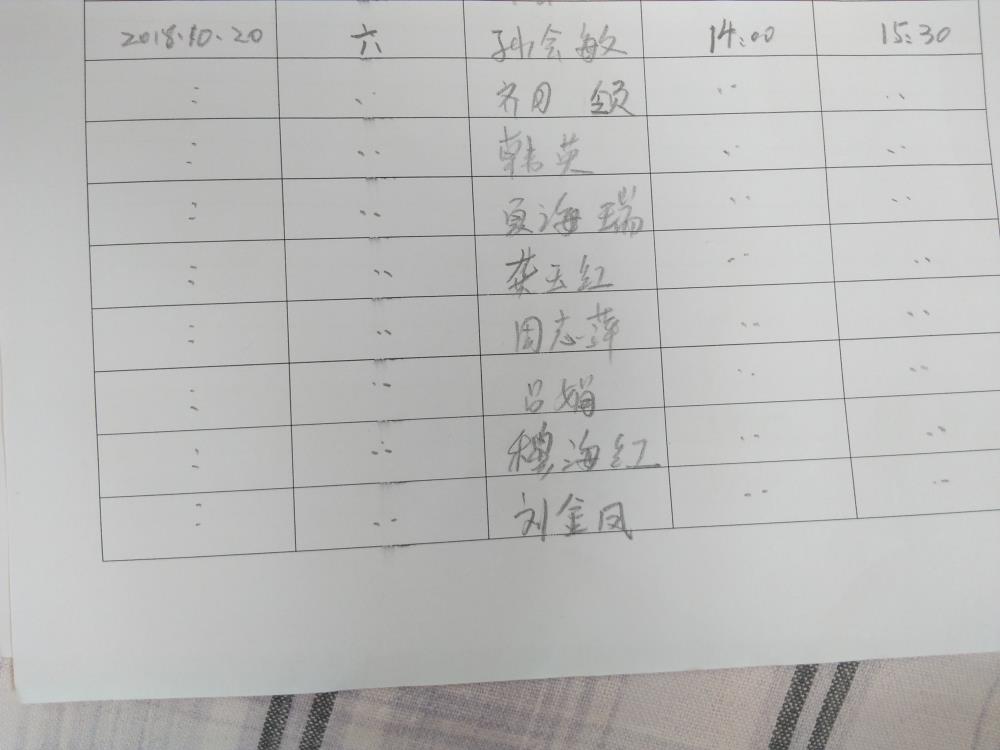 2018.10.20 六 孙会敏 14:00 15:30
:: ·· 齐田 ·· ··
:: ·· 韩英 ·· ··
:: ·· 夏海瑞 ·· ··
:: ·· 龚玉红 ·· ··
:: ·· 周志萍 ·· ··
:: ·· 吕娟 ·· ··
:: ·· 穆海红 ·· ··
:: ·· 刘金凤 ·· ··